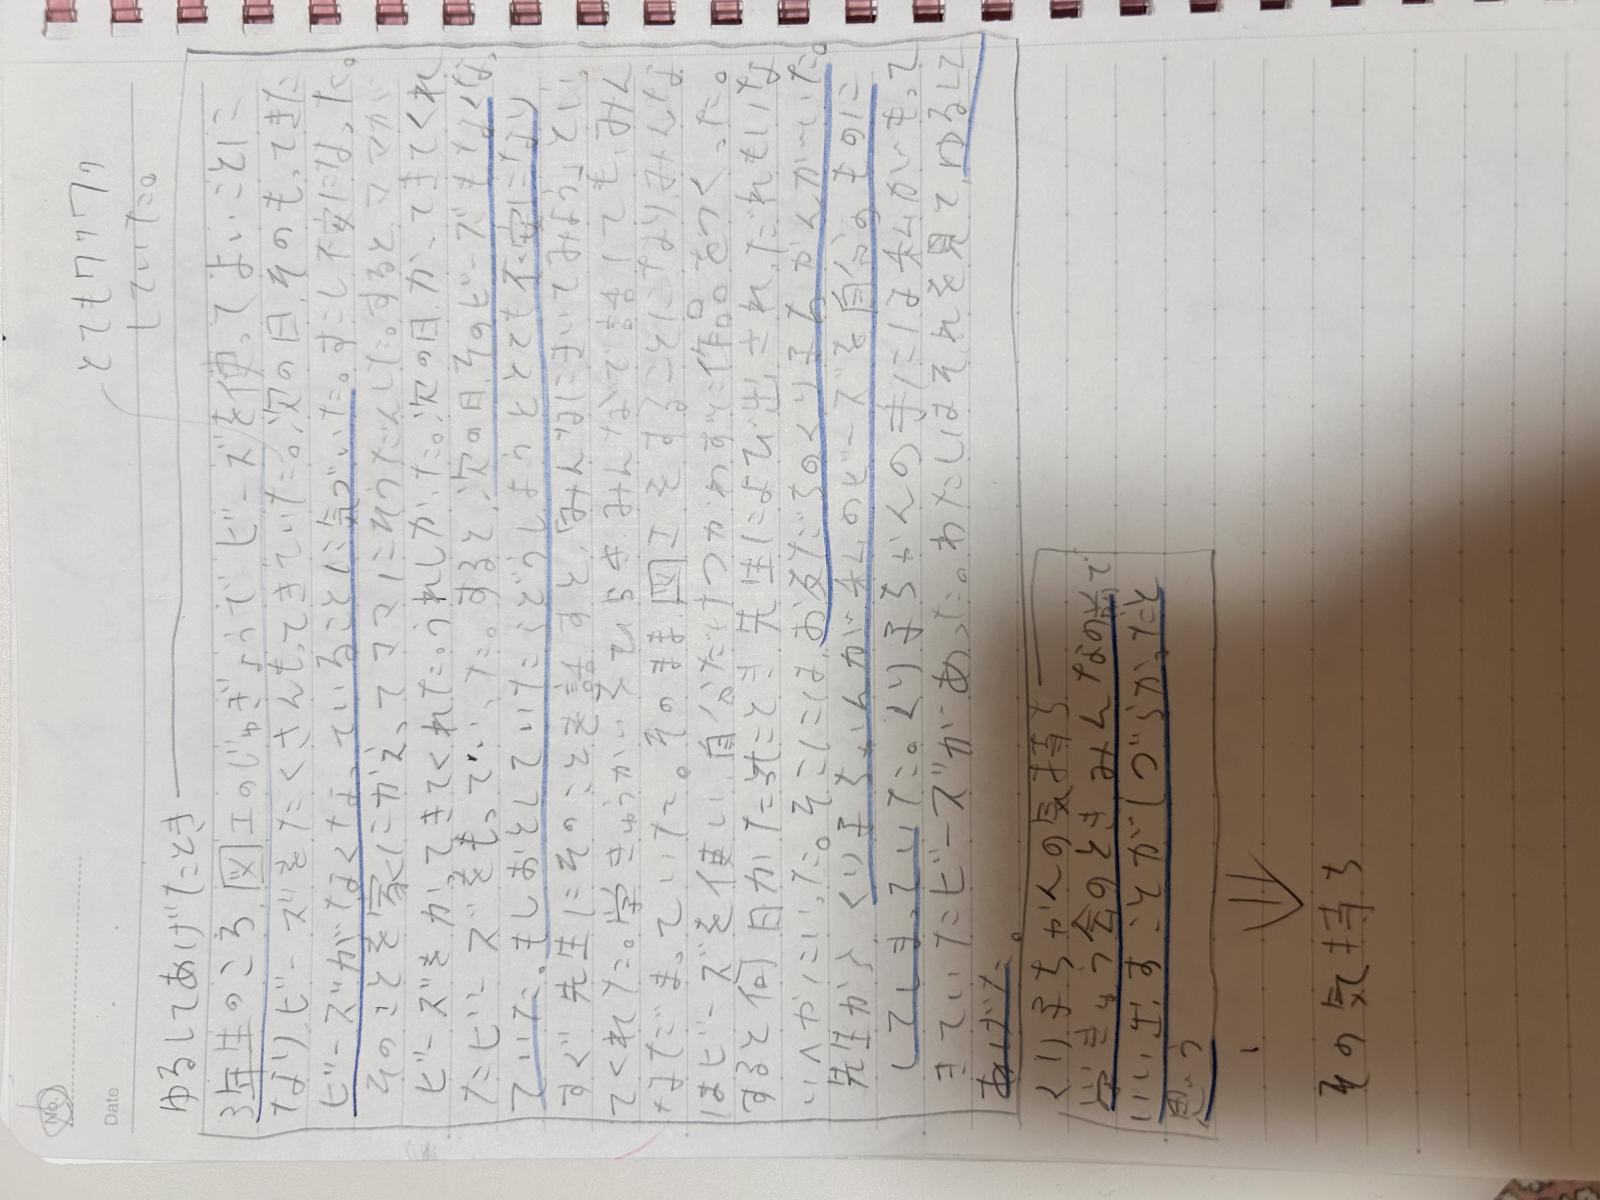 No.
Date
とてもワクワク
していた。
ゆるしてあげたとき
3年生のころ、図工のじゅぎょうでビーズを使ってよいことに
なりビーズをたくさんもってきていた。次の日、そのもってきた
ビーズがなくなっていることに気づいた。すこし不安になった。
そのことを家にかえってママにれんらくした。するとママが
ビーズをかってきてくれた。うれしかった。次の日、かってきてくれ
たビーズをもっていった。すると、次の日、そのビーズもなくな
っていた。もしおとしていたらどうしようととても不安になり
すぐ先生にそのことを話すと、「みんなにきいてみよう」とい
ってくれた。学きゅうかいをひらきみんなで話しても、みん
なだまっていた。そのまま図工をすることになりみんな
はビーズを使い、自分だけつかわずに作品をつくった。
すると何日かたったとき先生によび出され、だれもいな
いへやにいった。そこには、お友だちのくり子ちゃんがいた。
先生から、くり子ちゃんが私のビーズを自分のものに
してしまっていた。くり子ちゃんの手には私がもって
きていたビーズがあった。わたしはそれを見て、ゆるして
あげた。
くり子ちゃんの気持ち
学きゅう会のときみんなの前で
いい出すことがしづらかったと
思う
その気持ち